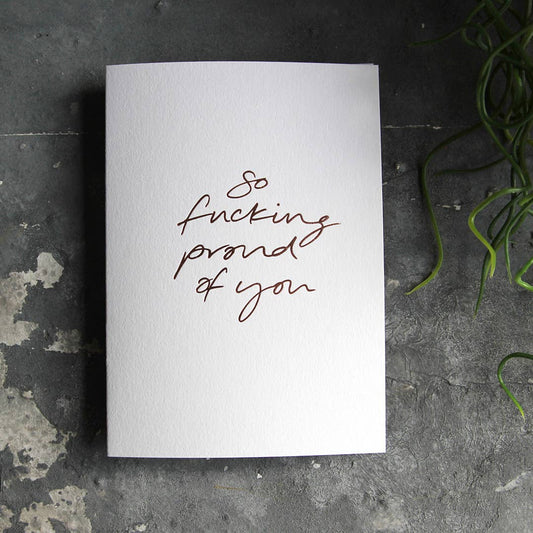 So
fucking
proud
of you